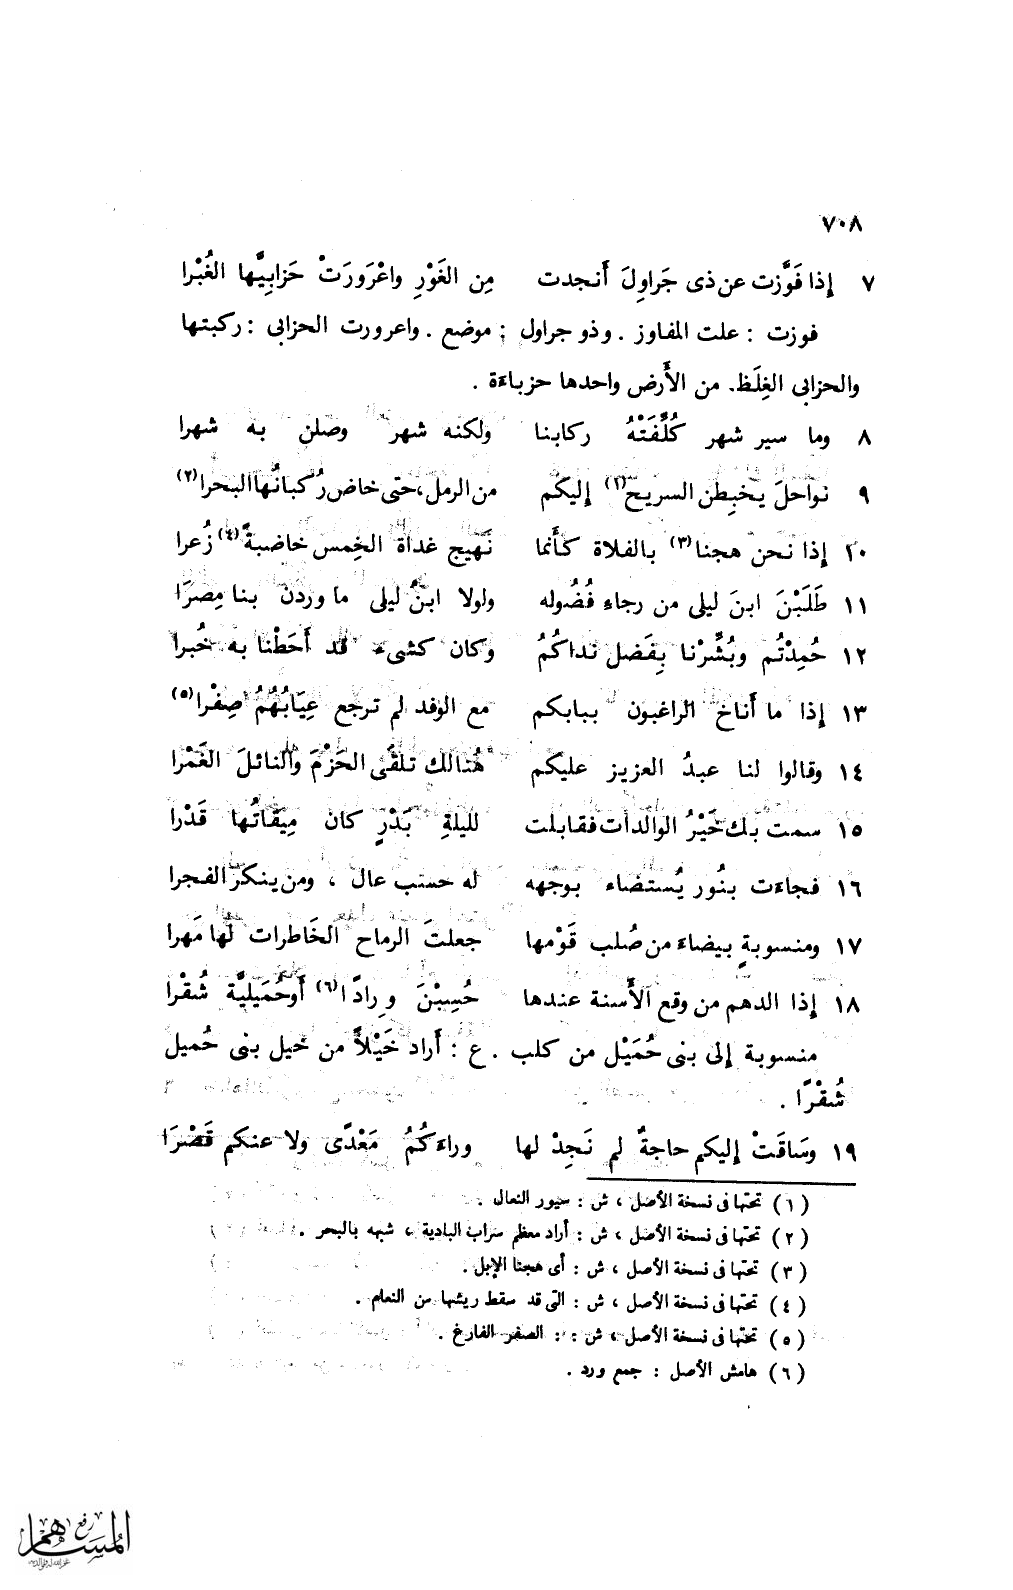 ٧٠٨
٧ إذا فَوَّزت عن ذى جَراوِلَ أَنجدت مِن الغَوْرِ واعْرَورَتْ حَزابِيَّها الغُبْرا
فوزت : علت المفاوز . وذو جراول : موضع . واعرورت الحزابى : ركبتها
والحزابى الغِلَظ. من الأَرض واحدها حزباءة .
٨ وما سير شهر كُلِّفَتْهُ ركابنا ولكنه شهر وصلن به شهرا
٩ نواحلَ يخبِطن السريح(١) إليكم من الرمل، حتى خاض رُكبانُها البحرا(٢)
١٠ إذا نحن هجنا(٣) بالفلاة كأَنما نَهيج غداة الخِمس خاضبةً(٤) زُعرا
١١ طَلَبْنَ ابنَ ليلى من رجاءِ فُضُوله ولولا ابنُ ليلى ما وردن بنا مِصرَا
١٢ حُمِدْتُم وبُشِّرْنا بِفَضل نداكُمُ وكان كشىء قد أَحَطْنا به خُبرا
١٣ إذا ما أَناخ الراغبون ببابكم مع الوفد لم ترجع عِيَابُهُمُ صِفْرا(٥)
١٤ وقالوا لنا عبدُ العزيز عليكم هُنالك تلقَى الحَزْمَ والنائلَ الغَمْرا
١٥ سمت بك خَيْرُ الوالدات فقابلت لليلةِ بَدْرٍ كان مِيقاتُها قَدْرا
١٦ فجاءت بنُور يُستضاء بوجهه له حسب عال ، ومن ينكر الفجرا
١٧ ومنسوبةٍ بيضاء من صُلب قَوْمها جعلتَ الرماح الخَاطرات لها مَهرا
١٨ إذا الدهم من وقع الأَسنة عندها حُسِبْنَ وِرادًا(٦) أَوحُمَيليَّة شُقْرا
منسوبة إلى بنى حُمَيْل من كلب . ع : أَراد خَيْلاً من خيل بنى حُميل
شُقْرًا .
١٩ وسَاقَتْ إليكم حاجةٌ لم نَجِدْ لها وراءَكُمُ مَعْدًى ولا عنكم قَصْرَا
(١) تحتها فى نسخة الأصل ، ش : سيور النعال .
(٢) تحتها فى نسخة الأصل ، ش : أراد معظم سراب البادية ، شبهه بالبحر .
(٣) تحتها فى نسخة الأصل ، ش : أى هجنا الإبل .
(٤) تحتها فى نسخة الأصل ، ش : التى قد سقط ريشها من النعام .
(٥) تحتها فى نسخة الأصل ، ش : : الصفر الفارغ .
(٦) هامش الأصل : جمع ورد .
رفع
المساهم